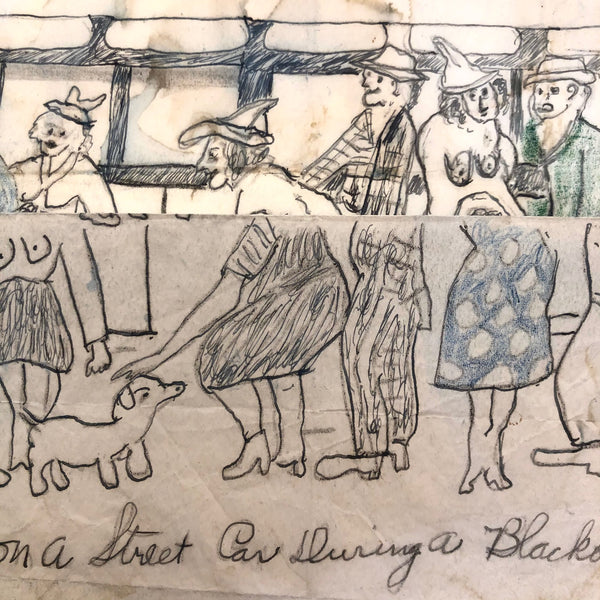 on a Street Car During a